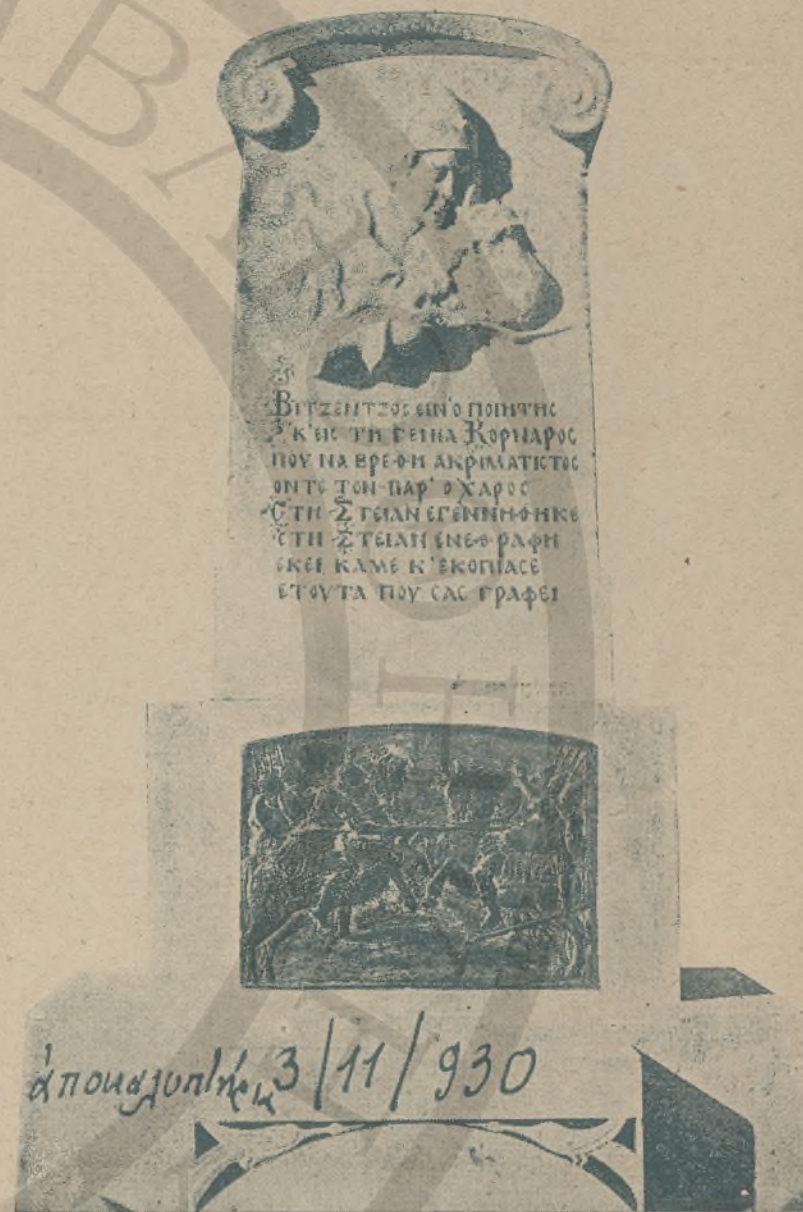 ΒΙΤΖΕΝΤΖΟΣ ΕΙΝ' Ο ΠΟΙΗΤΗΣ
Κ' ΕΙΣ ΤΗ ΓΕΝΙΑ ΚΟΡΝΑΡΟΣ
ΠΟΥ ΝΑ ΒΡΕΘΗ ΑΚΡΙΜΑΤΙΣΤΟΣ
ΟΝΤΕ ΤΟΝ ΠΑΡ' Ο ΧΑΡΟΣ
ΣΤΗ ΣΤΕΙΑΝ ΕΓΕΝΝΗΘΗΚΕ
ΣΤΗ ΣΤΕΙΑΝ ΕΝΕΘΡΑΦΗ
ΕΚΕΙ ΚΑΜΕ Κ' ΕΚΟΠΙΑΣΕ
ΕΤΟΥΤΑ ΠΟΥ ΣΑΣ ΓΡΑΦΕΙ
3/11/930